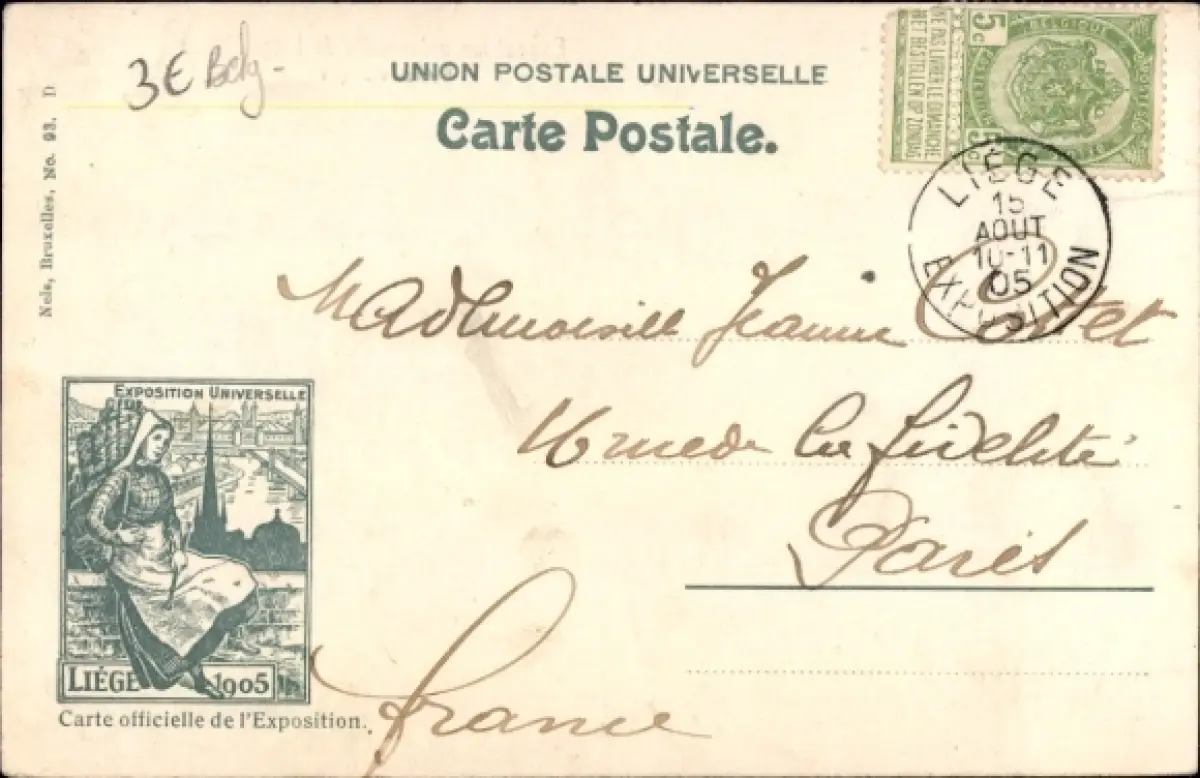 3€ Belg-
UNION POSTALE UNIVERSELLE
Carte Postale.
Nels, Bruxelles, No. 93. D
5c BELGIQUE 5c
NE PAS LIVRER LE DIMANCHE
NIET BESTELLEN OP ZONDAG
LIÉGE
15
AOUT
10-11
05
EXPOSITION
Madlmoiselle Jeanne
la fidelité
Paris
france
EXPOSITION UNIVERSELLE
LIÉGE 1905
Carte officielle de l'Exposition.